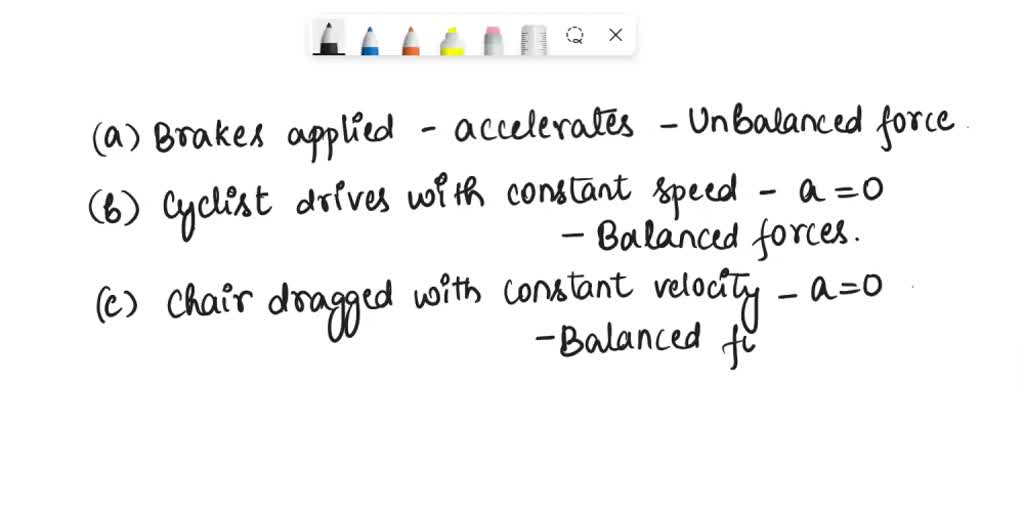 (a) Brakes applied - accelerates - Unbalanced force
(b) Cyclist drives with constant speed - a = 0
- Balanced forces.
(c) Chair dragged with constant velocity - a = 0
- Balanced fo